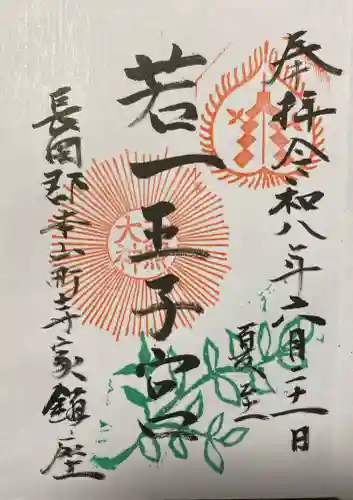 奉拝 令和八年六月二十一日
夏至
若一王子宮
長岡郡本山町寺家鎮座